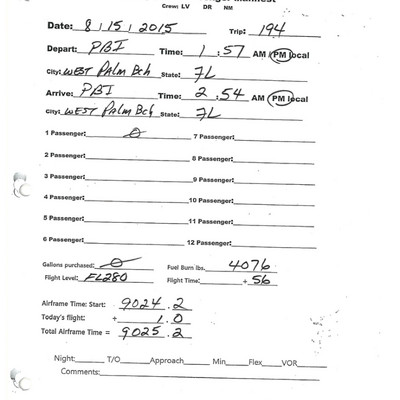 Manifest
Crew: LV DR NM
Date: 8/15/2015 Trip: 194
Depart: PBI Time: 1:57 AM / PM local
City: WEST PALM Bch State: FL
Arrive: PBI Time: 2:54 AM / PM local
City: WEST PALM Bch State: FL
1 Passenger: 0 7 Passenger:
2 Passenger: 8 Passenger:
3 Passenger: 9 Passenger:
4 Passenger: 10 Passenger:
5 Passenger: 11 Passenger:
6 Passenger: 12 Passenger:
Gallons purchased: 0 Fuel Burn lbs. 4076
Flight Level: FL280 Flight Time: + 56
Airframe Time: Start: 9024.2
Today's flight: + 1.0
Total Airframe Time = 9025.2
Night: T/O Approach Min Flex VOR
Comments: